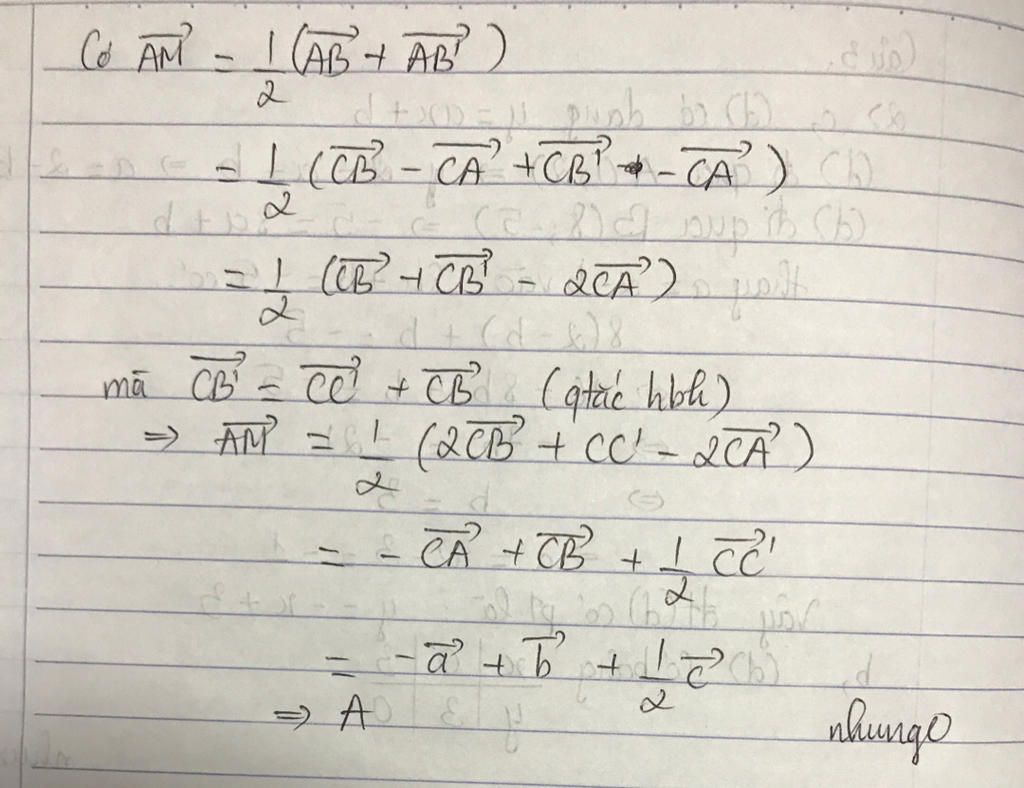 Có \overrightarrow{AM} = \frac{1}{2} (\overrightarrow{AB} + \overrightarrow{AB'})
= \frac{1}{2} (\overrightarrow{CB} - \overrightarrow{CA} + \overrightarrow{CB'} - \overrightarrow{CA})
= \frac{1}{2} (\overrightarrow{CB} + \overrightarrow{CB'} - 2\overrightarrow{CA})
mà \overrightarrow{CB'} = \overrightarrow{CC'} + \overrightarrow{CB} (qtắc hbh)
⇒ \overrightarrow{AM} = \frac{1}{2} (2\overrightarrow{CB} + CC' - 2\overrightarrow{CA})
= -\overrightarrow{CA} + \overrightarrow{CB} + \frac{1}{2} \overrightarrow{CC'}
= -\overrightarrow{a} + \overrightarrow{b} + \frac{1}{2} \overrightarrow{c}
⇒ A
nhungo